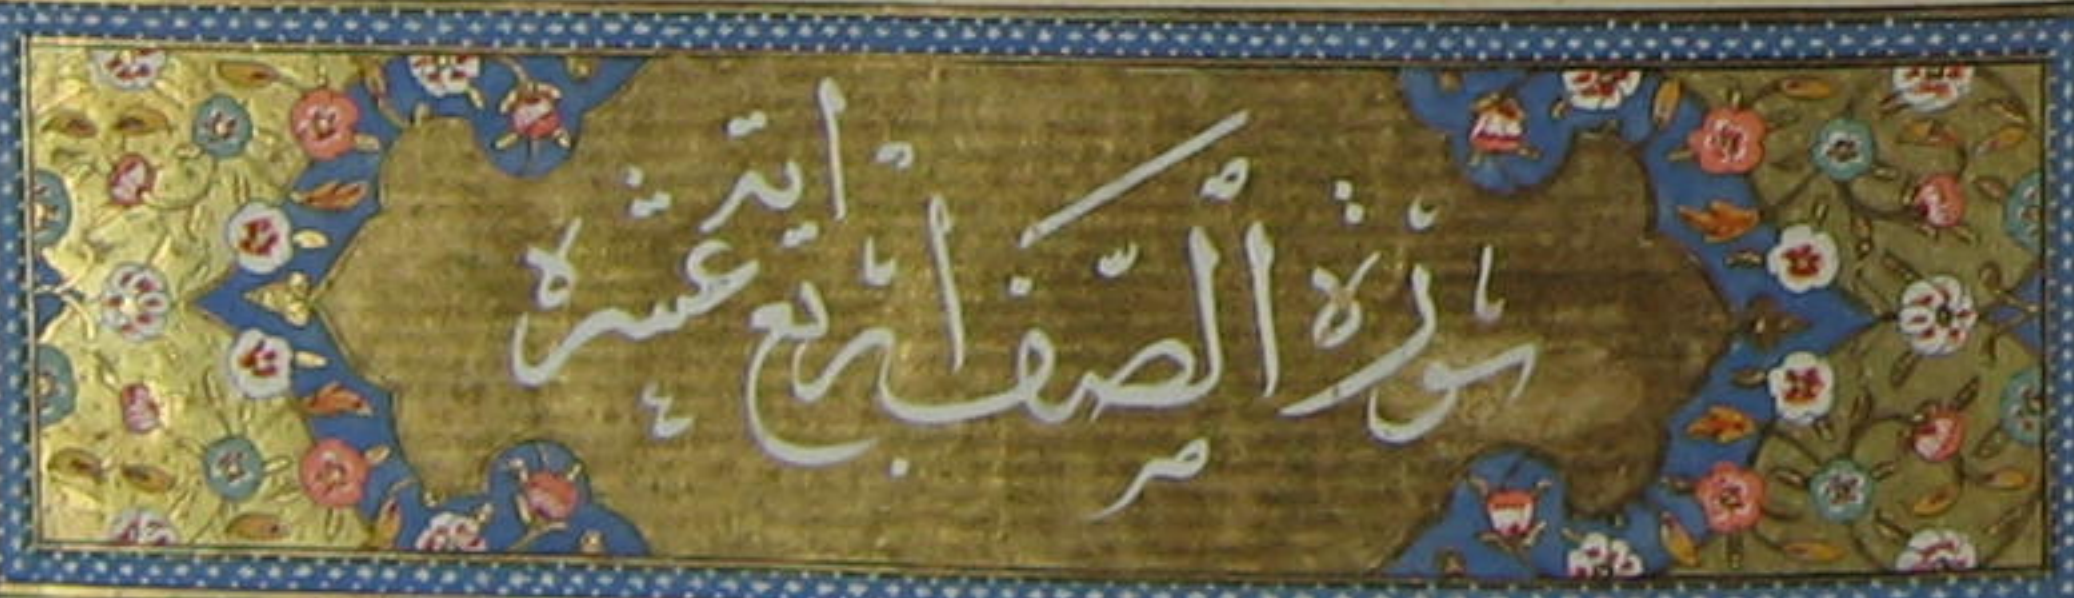 سورة الصف اربع عشره اية